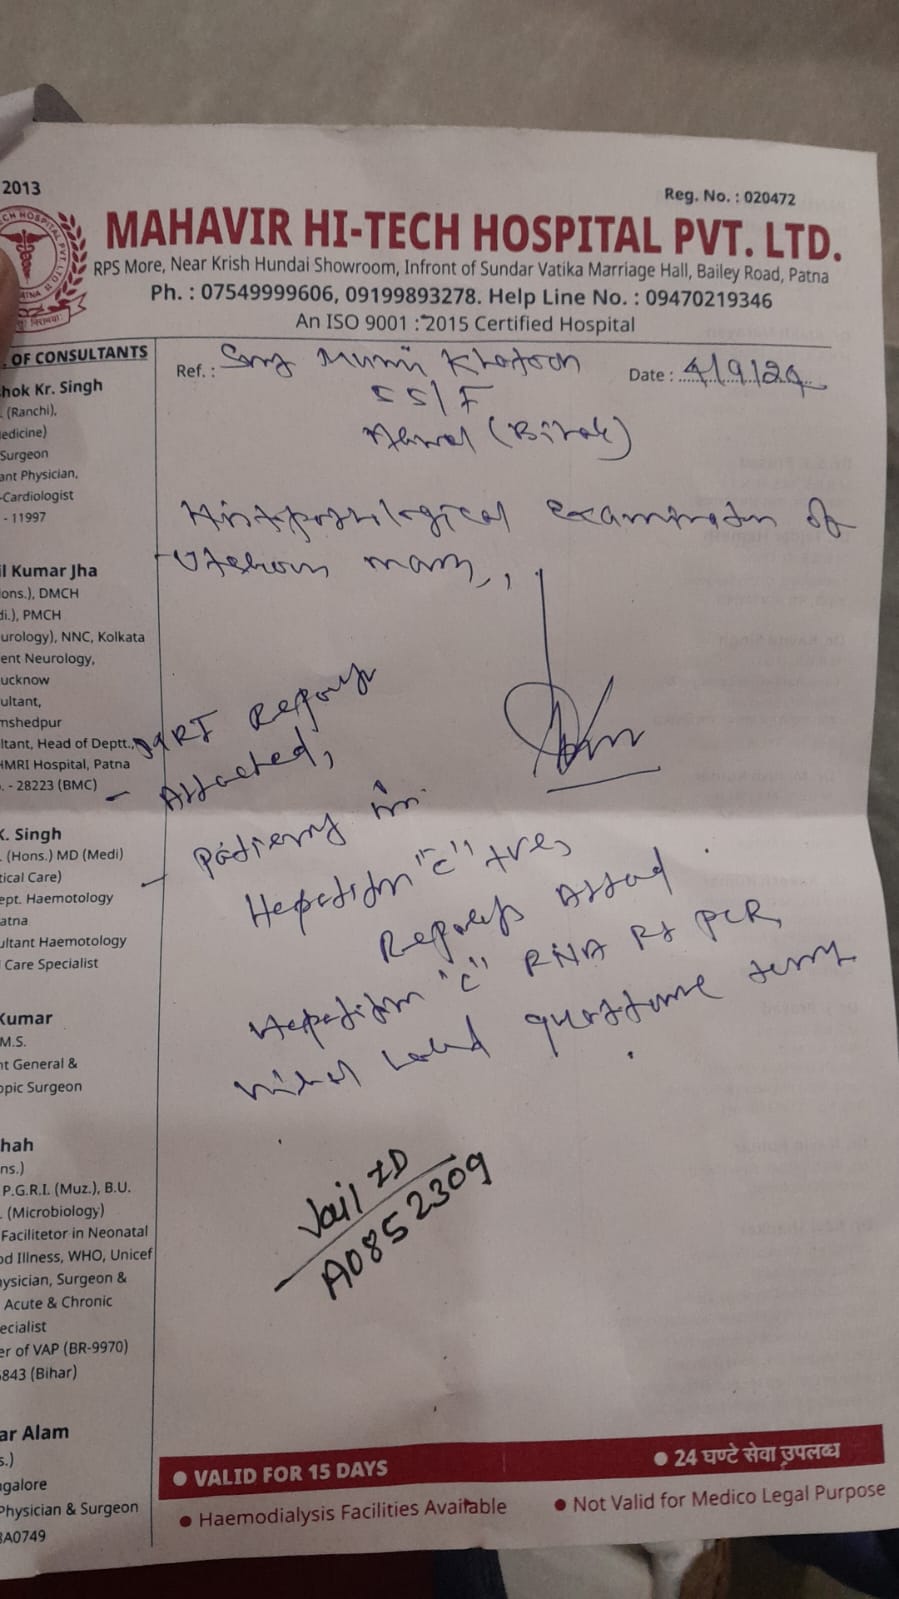 2013
Reg. No. : 020472
MAHAVIR HI-TECH HOSPITAL PVT. LTD.
RPS More, Near Krish Hundai Showroom, Infront of Sundar Vatika Marriage Hall, Bailey Road, Patna
Ph. : 07549999606, 09199893278. Help Line No. : 09470219346
An ISO 9001 : 2015 Certified Hospital
OF CONSULTANTS
hok Kr. Singh
. (Ranchi),
edicine)
Surgeon
ant Physician,
-Cardiologist
- 11997
il Kumar Jha
ons.), DMCH
di.), PMCH
urology), NNC, Kolkata
ent Neurology,
ucknow
ultant,
mshedpur
ltant, Head of Deptt.,
HMRI Hospital, Patna
. - 28223 (BMC)
K. Singh
. (Hons.) MD (Medi)
tical Care)
ept. Haemotology
atna
ultant Haemotology
Care Specialist
Kumar
M.S.
nt General &
opic Surgeon
hah
ns.)
P.G.R.I. (Muz.), B.U.
. (Microbiology)
Facilitetor in Neonatal
od Illness, WHO, Unicef
hysician, Surgeon &
Acute & Chronic
ecialist
er of VAP (BR-9970)
5843 (Bihar)
ar Alam
s.)
ngalore
Physician & Surgeon
BA0749
Ref. : Munni Khatoon
Date : 4/9/24
55/F
(Bihar)
examination of
MRI Report
Attached,
Patient
Hepatitis "C" +ve,
Reports
Hepatitis "C" RNA Rt PCR,
Jail ID
A0852309
VALID FOR 15 DAYS
24 घण्टे सेवा उपलब्ध
Haemodialysis Facilities Available
Not Valid for Medico Legal Purpose